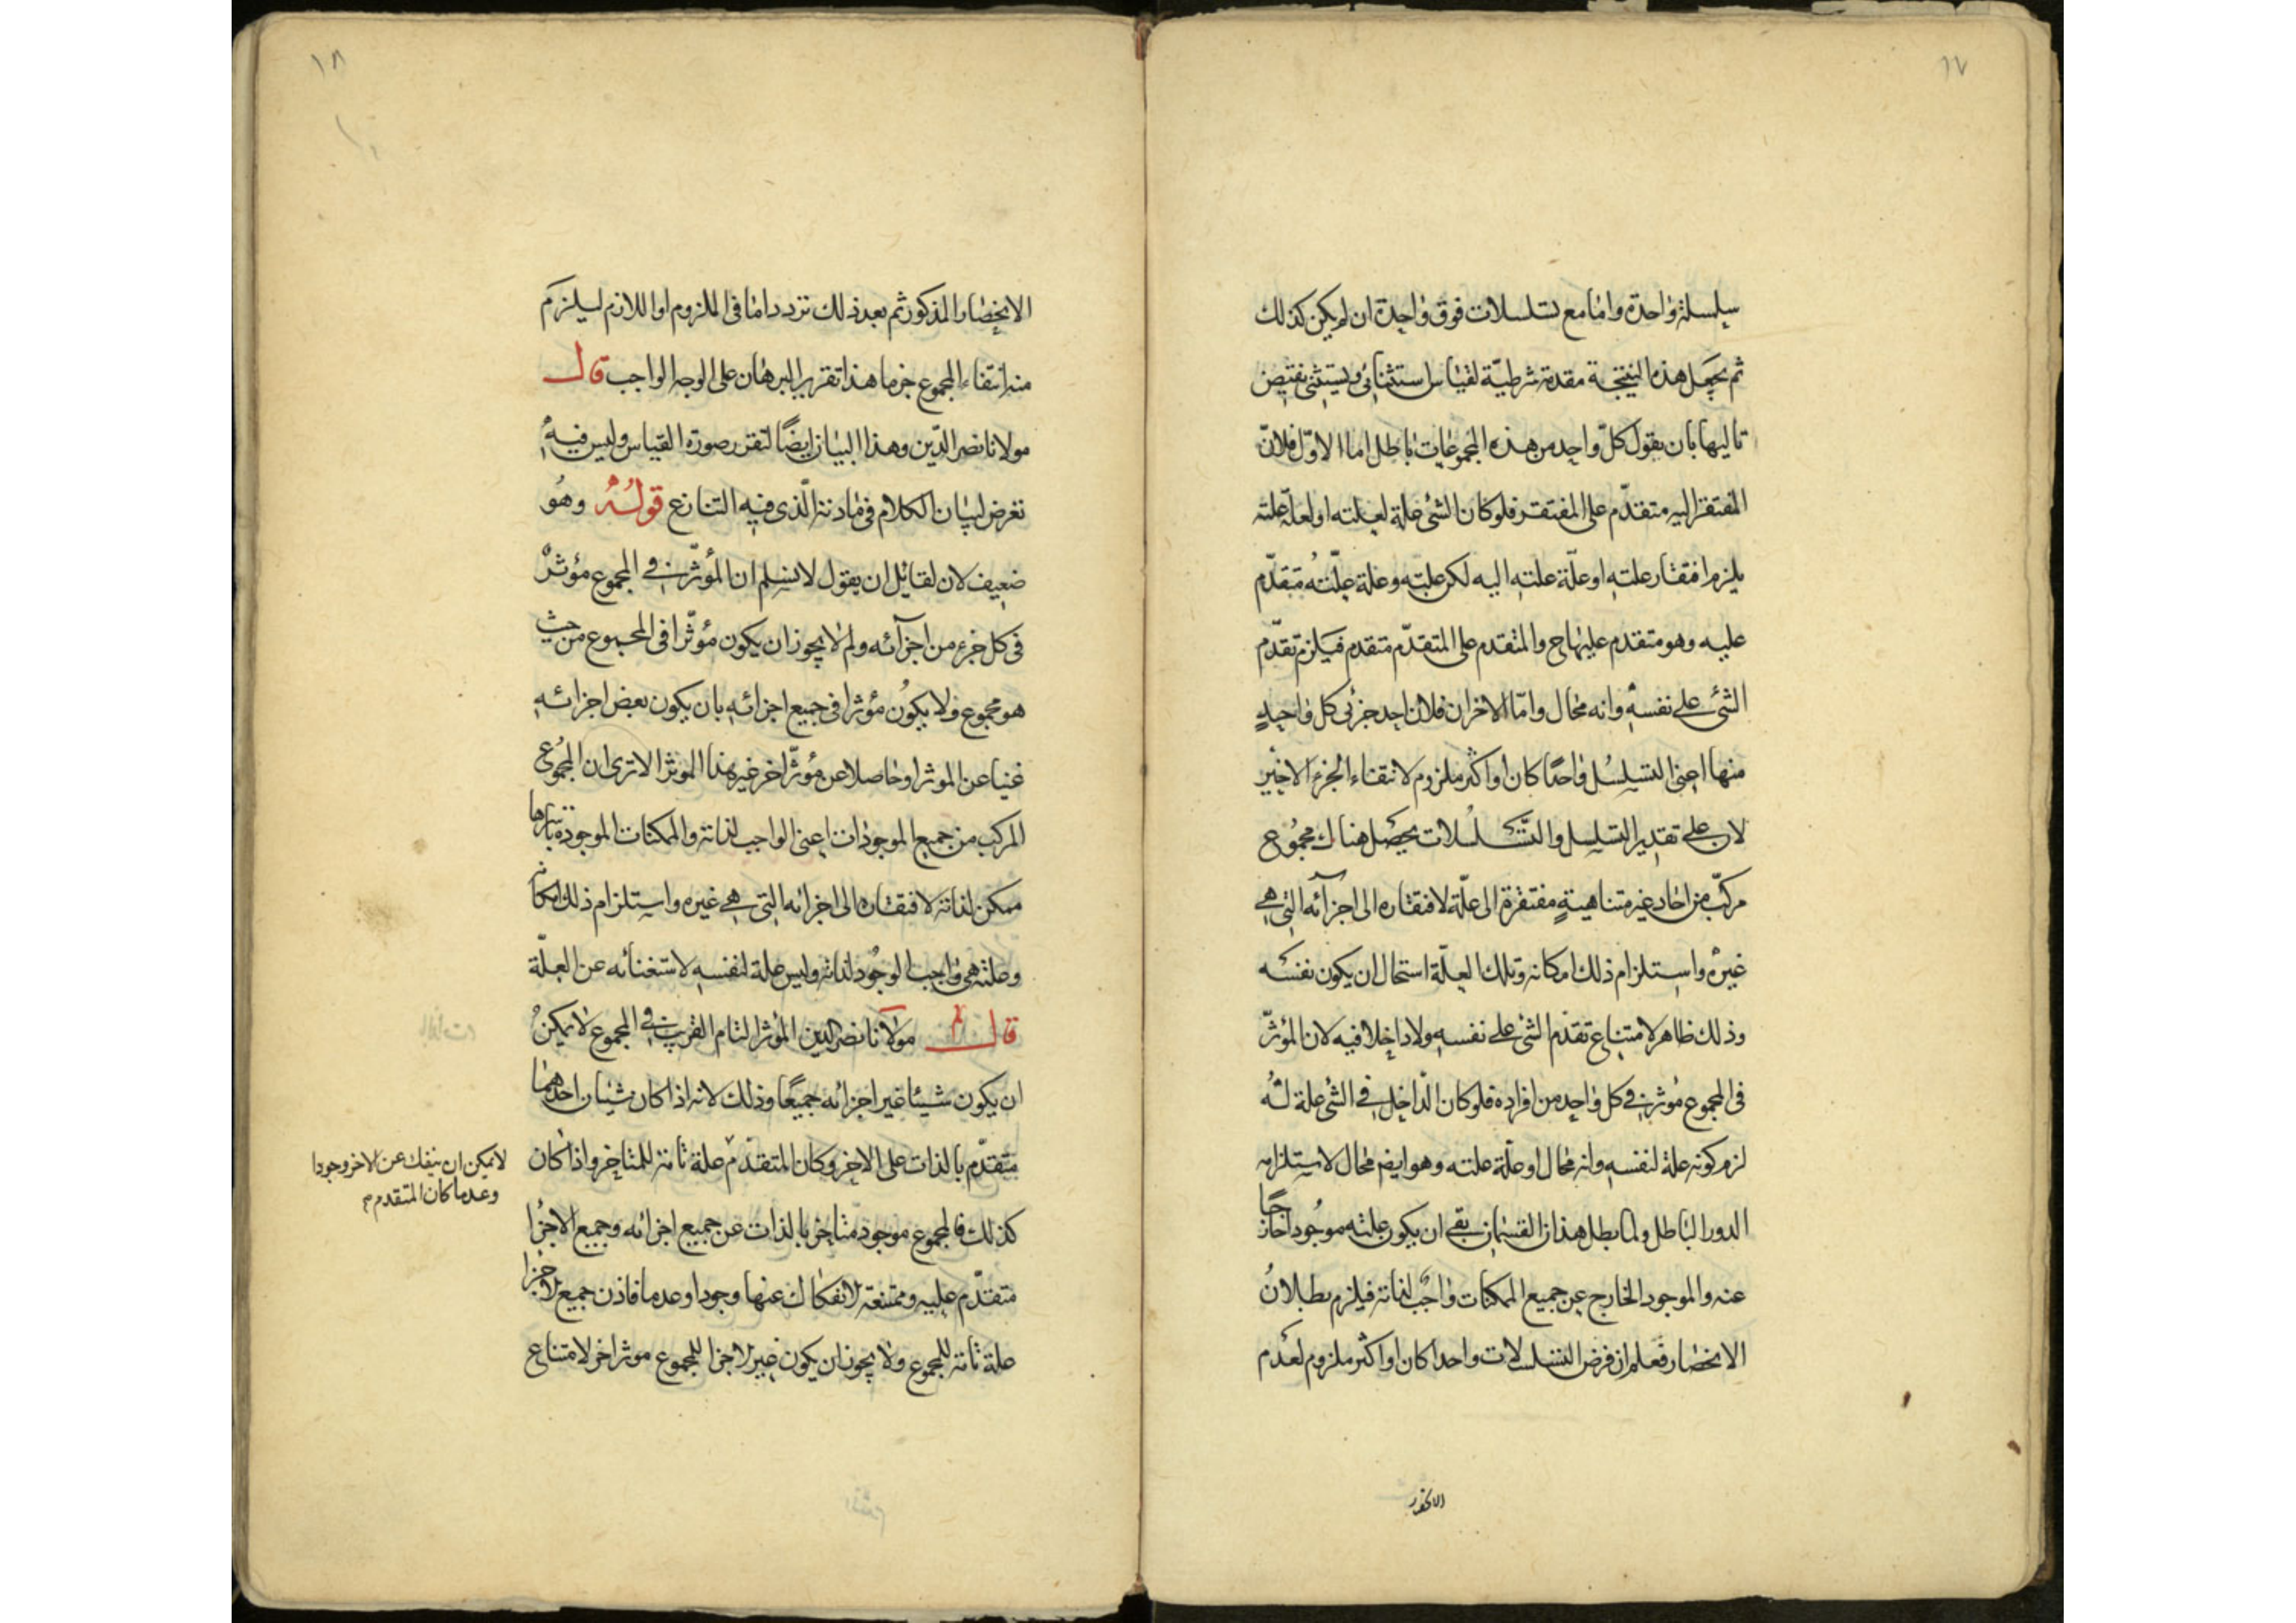 ١٧
سلسلة واحدة واما مع تسلسلات فوق واحدة ان لم يكن كذلك
ثم يجعل هذه النتيجة مقدمة شرطيّة لقياس استثنائى ويستثنى نقيض
تاليها بان يقول كلّ واحد من هذه المجموعات باطل اما الاوّل فلانّ
المفتقر اليه متقدّم على المفتقر فلو كان الشئ علة لعلته او لعلّة علته
يلزم افتقار علته او علّة علته اليه لكن علته وعلة علّته متقدّم
عليه وهو متقدم عليهاح والمتقدم على المتقدّم متقدم فيلزم تقدّم
الشئ على نفسه وانه محال وامّا الاخران فلان احد جزئى كل واحدٍ
منها اعنى التسلسُل واحدًا كان او اكثر ملزوم لانتفاء الجزء الاخير
لان على تقدير التسلسل والتّسلسُلات يحصَل هناك مجمُوع
مركّب من احاد غير متناهيةٍ مفتقرة الى علّة لافتقاره الى اجزآئه التى هى
غيرهُ واستلزام ذلك امكانه وتلك العلّة استحال ان يكون نفسَه
وذلك ظاهر لامتناع تقدّم الشئ على نفسه ولا داخلا فيه لان المؤثّر
فى المجموع مُوثر فى كل واحد من افراده فلو كان الدّاخل فى الشئ علة لهُ
لزم كونه علة لنفسه وانه محال او علّة علته وهو ايضا محال لاستلزامه
الدور الباطل ولما بطل هذان القسمان بقى ان يكون علته موجُودا خارجًا
عنه والموجود الخارج عن جميع الممكنات واجبٌ لذاته فيلزم بطلانُ
الانحصار فَعلم ان فرض التسلسلات واحدا كان او اكثر ملزوم لعدَم
١٨
الانحصار المذكور ثم بعد ذلك تردد اما فى الملزوم او اللازم ليلزم
منه انتفاء المجموع جزما هذا تقرير البرهان على الوجه الواجب قال
مولانا نصير الدّين وهذا البيان ايضًا لتقرر صورة القياس وليس فيه
تعرض لبيان الكلام فى مادته الّذى فيه التنازع قولُهُ وهُو
ضعيف لان لقائل ان يقول لا نسلم ان المُؤثّر فى المجموع مؤثرٌ
فى كل جزء من اجزآئه ولم لا يجوز ان يكون مُوثّرا فى المجموع من حيث
هو مجموع ولا يكوُن مُؤثرا فى جميع اجزائه بان يكون بعض اجزائه
غنيا عن الموثر او حاصلا عن مُوثّر اخر غير هذا الموثر الا ترى ان المجمُوع
المركب من جميع الموجودات اعنى الواجب لذاته والممكنات الموجودة باسرها
ممكن لذاته لافتقاره الى اجزائه التى هى غيره واستلزام ذلك امكانه
وعلته هى واجب الوجُود لذاته وليس علة لنفسه لاستغنائه عن العلّة
قال مولآنا نصير الدين المؤثر التام القريب فى المجموع لا يمكن
ان يكون شيئا غير اجزائه جميعًا وذلك لانه اذا كان شيئان احدهمَا
متقدّم بالذات على الاخر وكان المتقدّم علة تامة للمتاخر واذا كان
لا يمكن ان ينفك عن الاخر وجودا
وعدما كان المتقدم م
كذلك فالمجموع موجود متاخر بالذات عن جميع اجزائه وجميع الاجزا
متقدّم عليه وممتنعة لانفكاك عنها وجودا وعدما فاذن جميع الاجزا
علة تامة للمجموع ولا يجوز ان يكون غير الاجزا للمجموع موثر اخر لامتناع